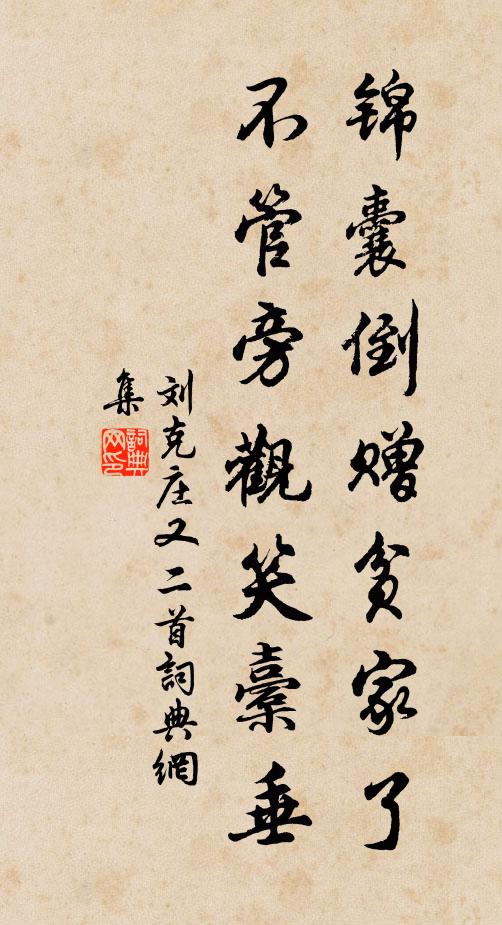 锦囊倒赠贫家了
不管旁觀笑橐垂
刘克庄又二首詞典網
集
詞典網印